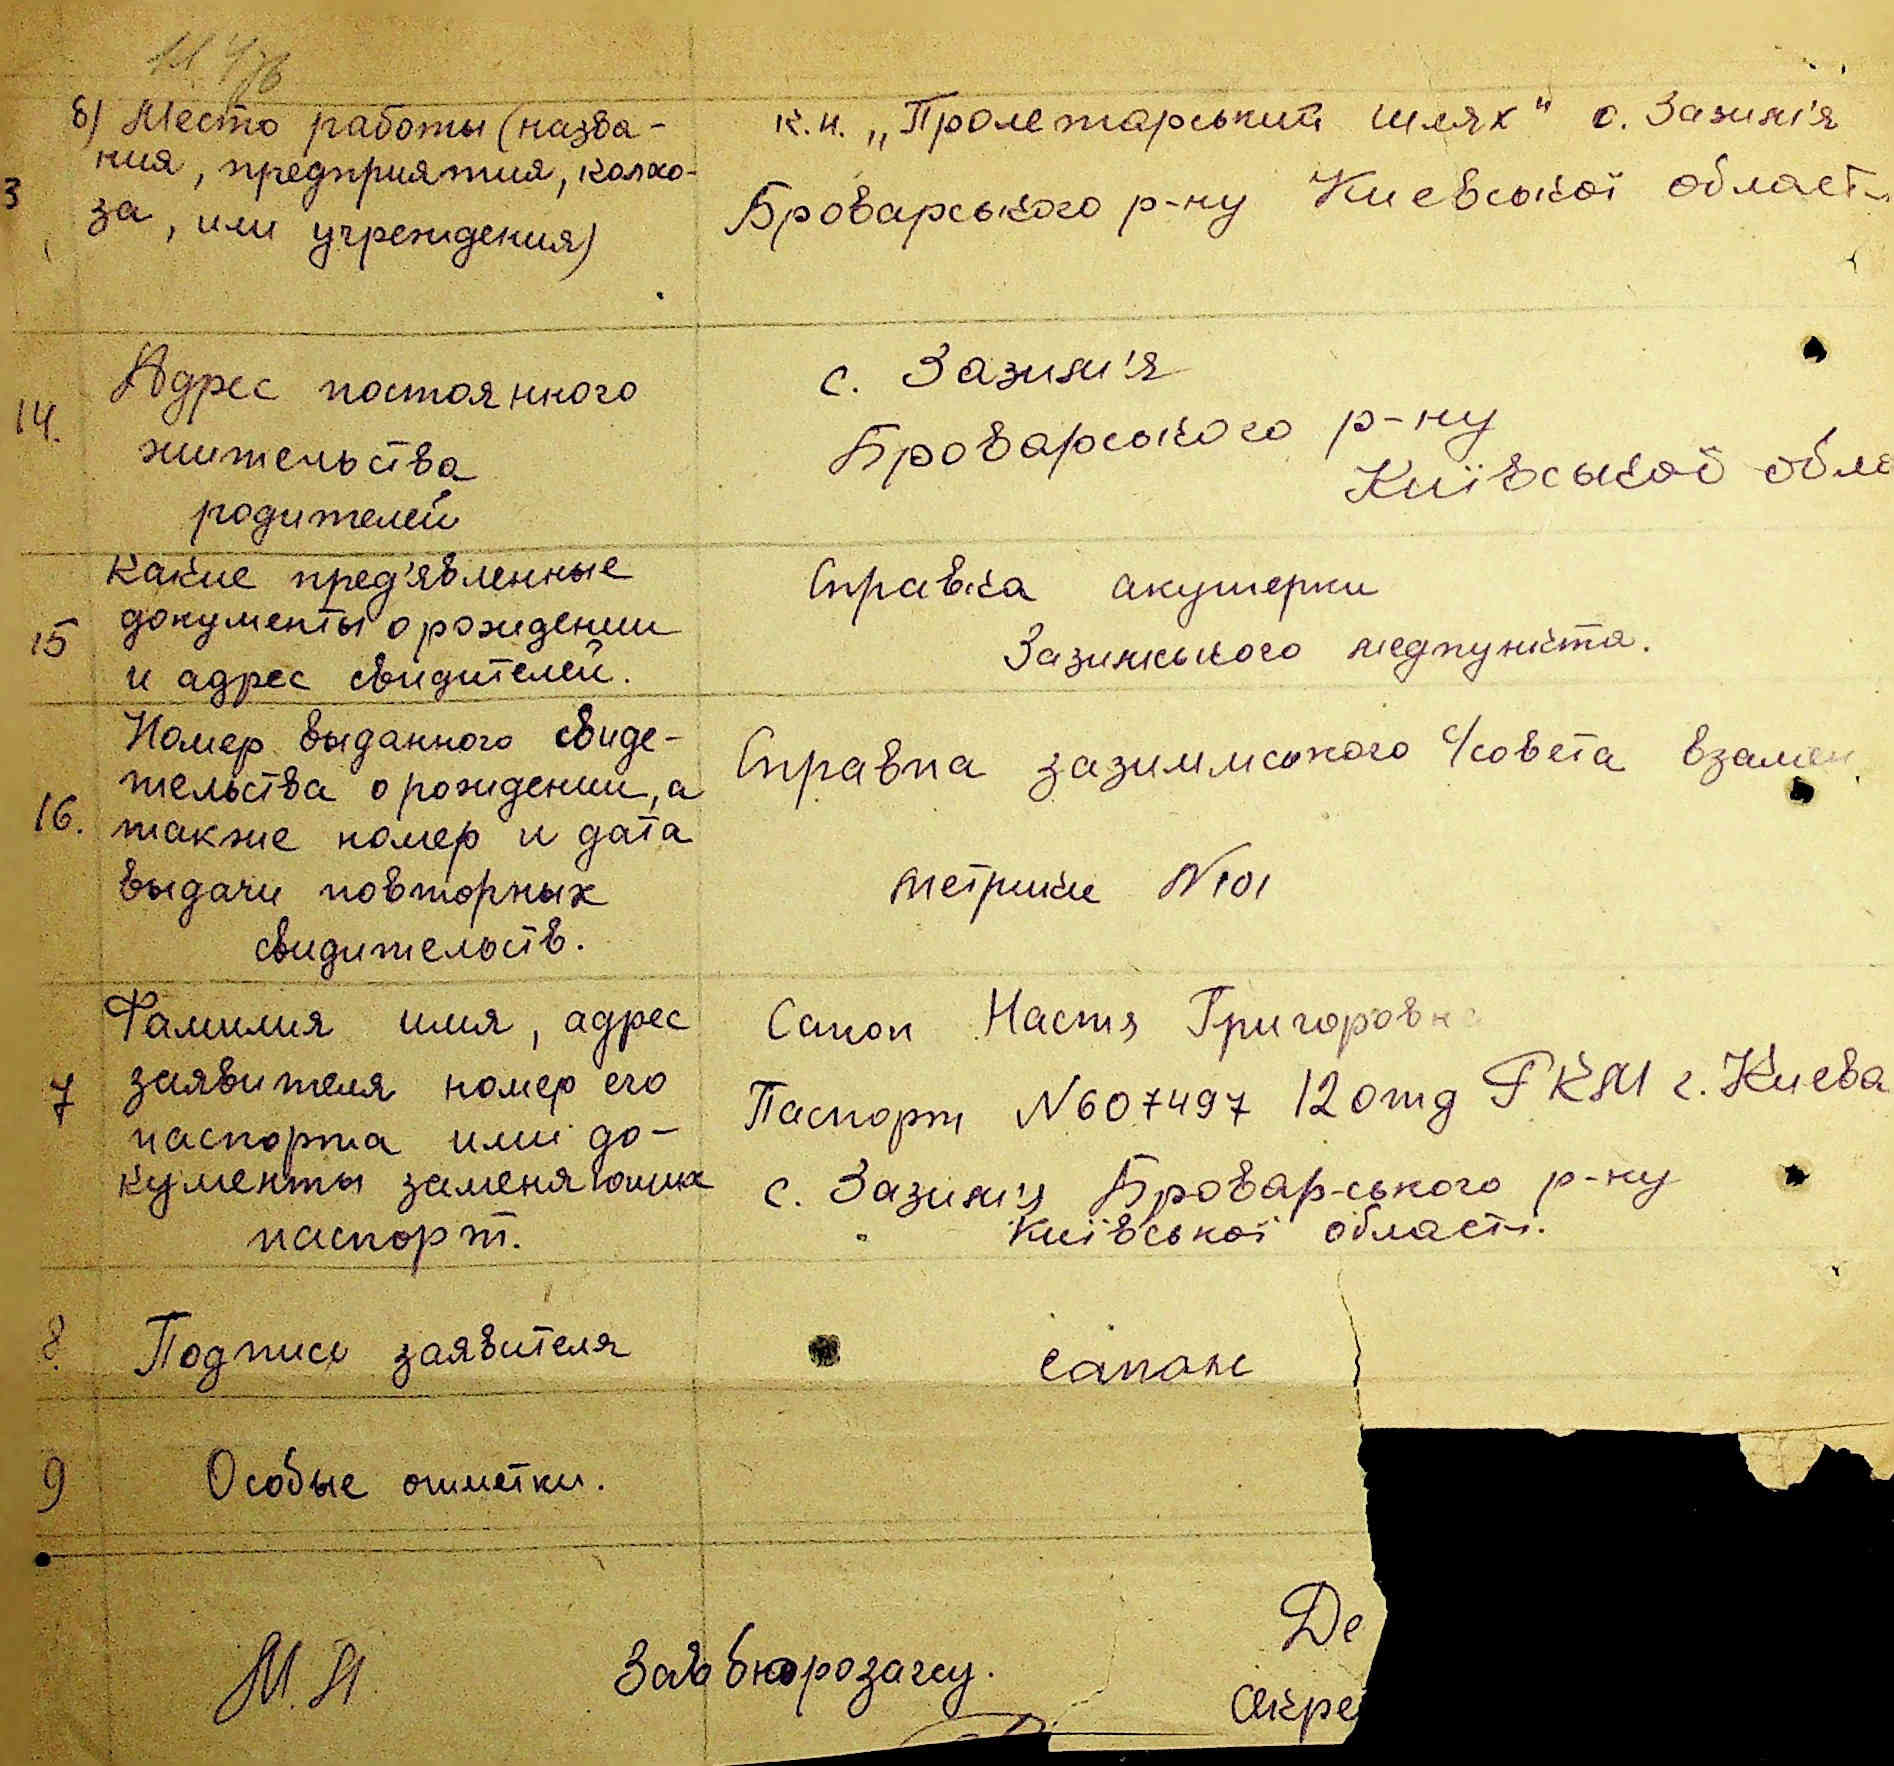 б) Место работы (назва-
ния, предприятия, колхо-
за, или учреждения)
3
к.и. „Пролетарський шлях" с. Зазим'я
Броварського р-ну Киевської област
14.
Адрес постоянного
жительства
родителей
с. Зазим'я
Броварського р-ну
Київської обла
15
Какие пред'явленные
документы о рождении
и адрес свидетелей.
Справка акушерки
Зазимського медпункта.
16.
Номер выданного свиде-
тельства о рождении, а
также номер и дата
выдачи повторных
свидительств.
Справка зазиммського с/совета взамен
метрики N101
7
Фамилия имя, адрес
заявителя номер его
паспорта или до-
кументы заменяющих
паспорт.
Сапон Настя Григоровна
Паспорт N607497 12 отд РКМ г. Киева
с. Зазим'я Броварського р-ну
Київської області.
8.
Подпись заявителя
сапон
9
Особые отметки.
М.П.
Зав бюрозагсу.
Де
Секре